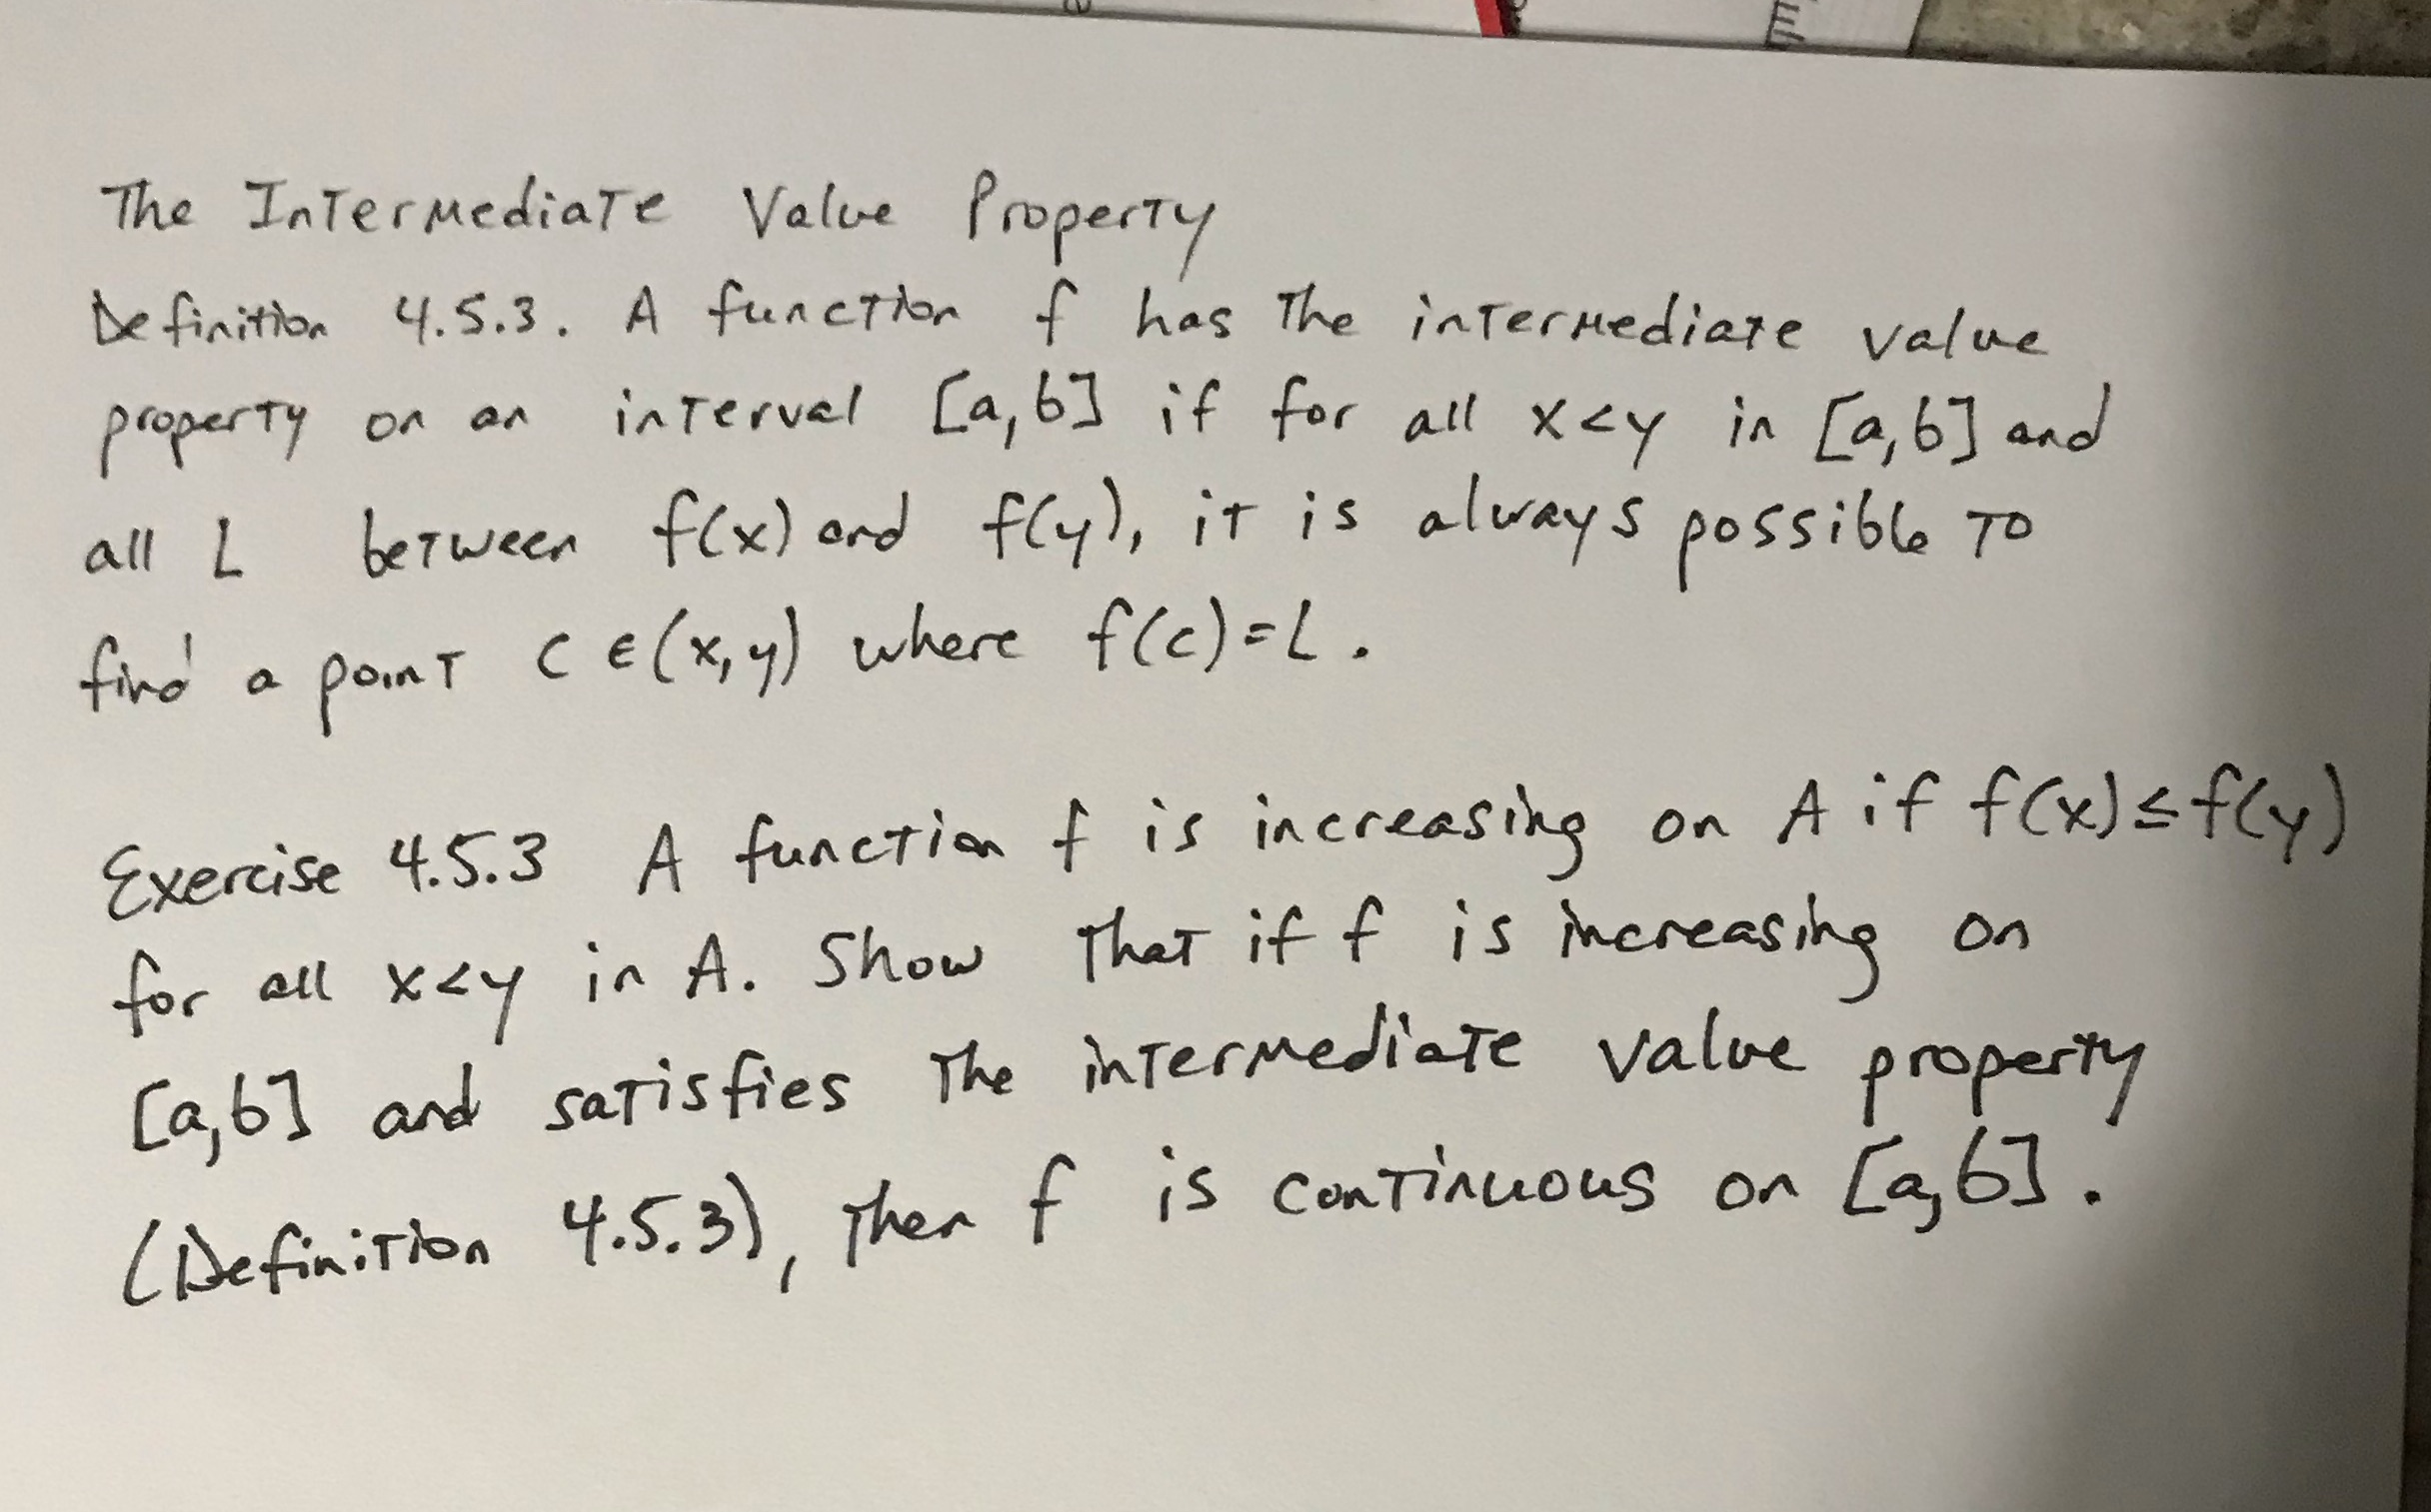 The Intermediate Value Property
Definition 4.5.3. A function f has the intermediate value
property on an interval [a,b] if for all x<y in [a,b] and
all L between f(x) and f(y), it is always possible to
find a point c ∈ (x,y) where f(c)=L.
Exercise 4.5.3 A function f is increasing on A if f(x)≤f(y)
for all x<y in A. Show that if f is increasing on
[a,b] and satisfies the intermediate value property
(Definition 4.5.3), then f is continuous on [a,b].